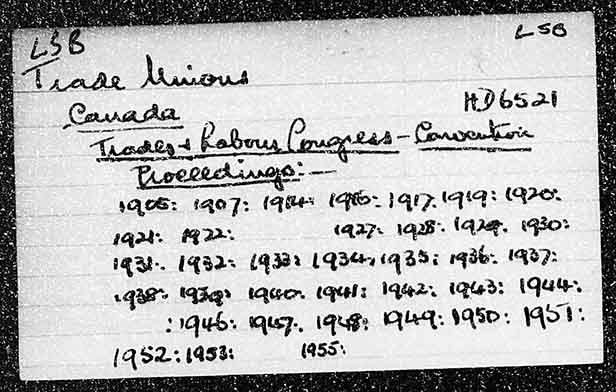 LSB LSB
Trade Unions
Canada HD6521
Trades & Labour Congress - Convention
Proceedings:-
1905: 1907: 1914: 1916: 1917. 1919: 1920:
1921: 1922: 1927: 1928: 1929. 1930:
1931. 1932: 1933: 1934, 1935: 1936: 1937:
1938: 1939: 1940. 1941: 1942: 1943: 1944:
: 1946: 1947. 1948: 1949: 1950: 1951:
1952: 1953: 1955: